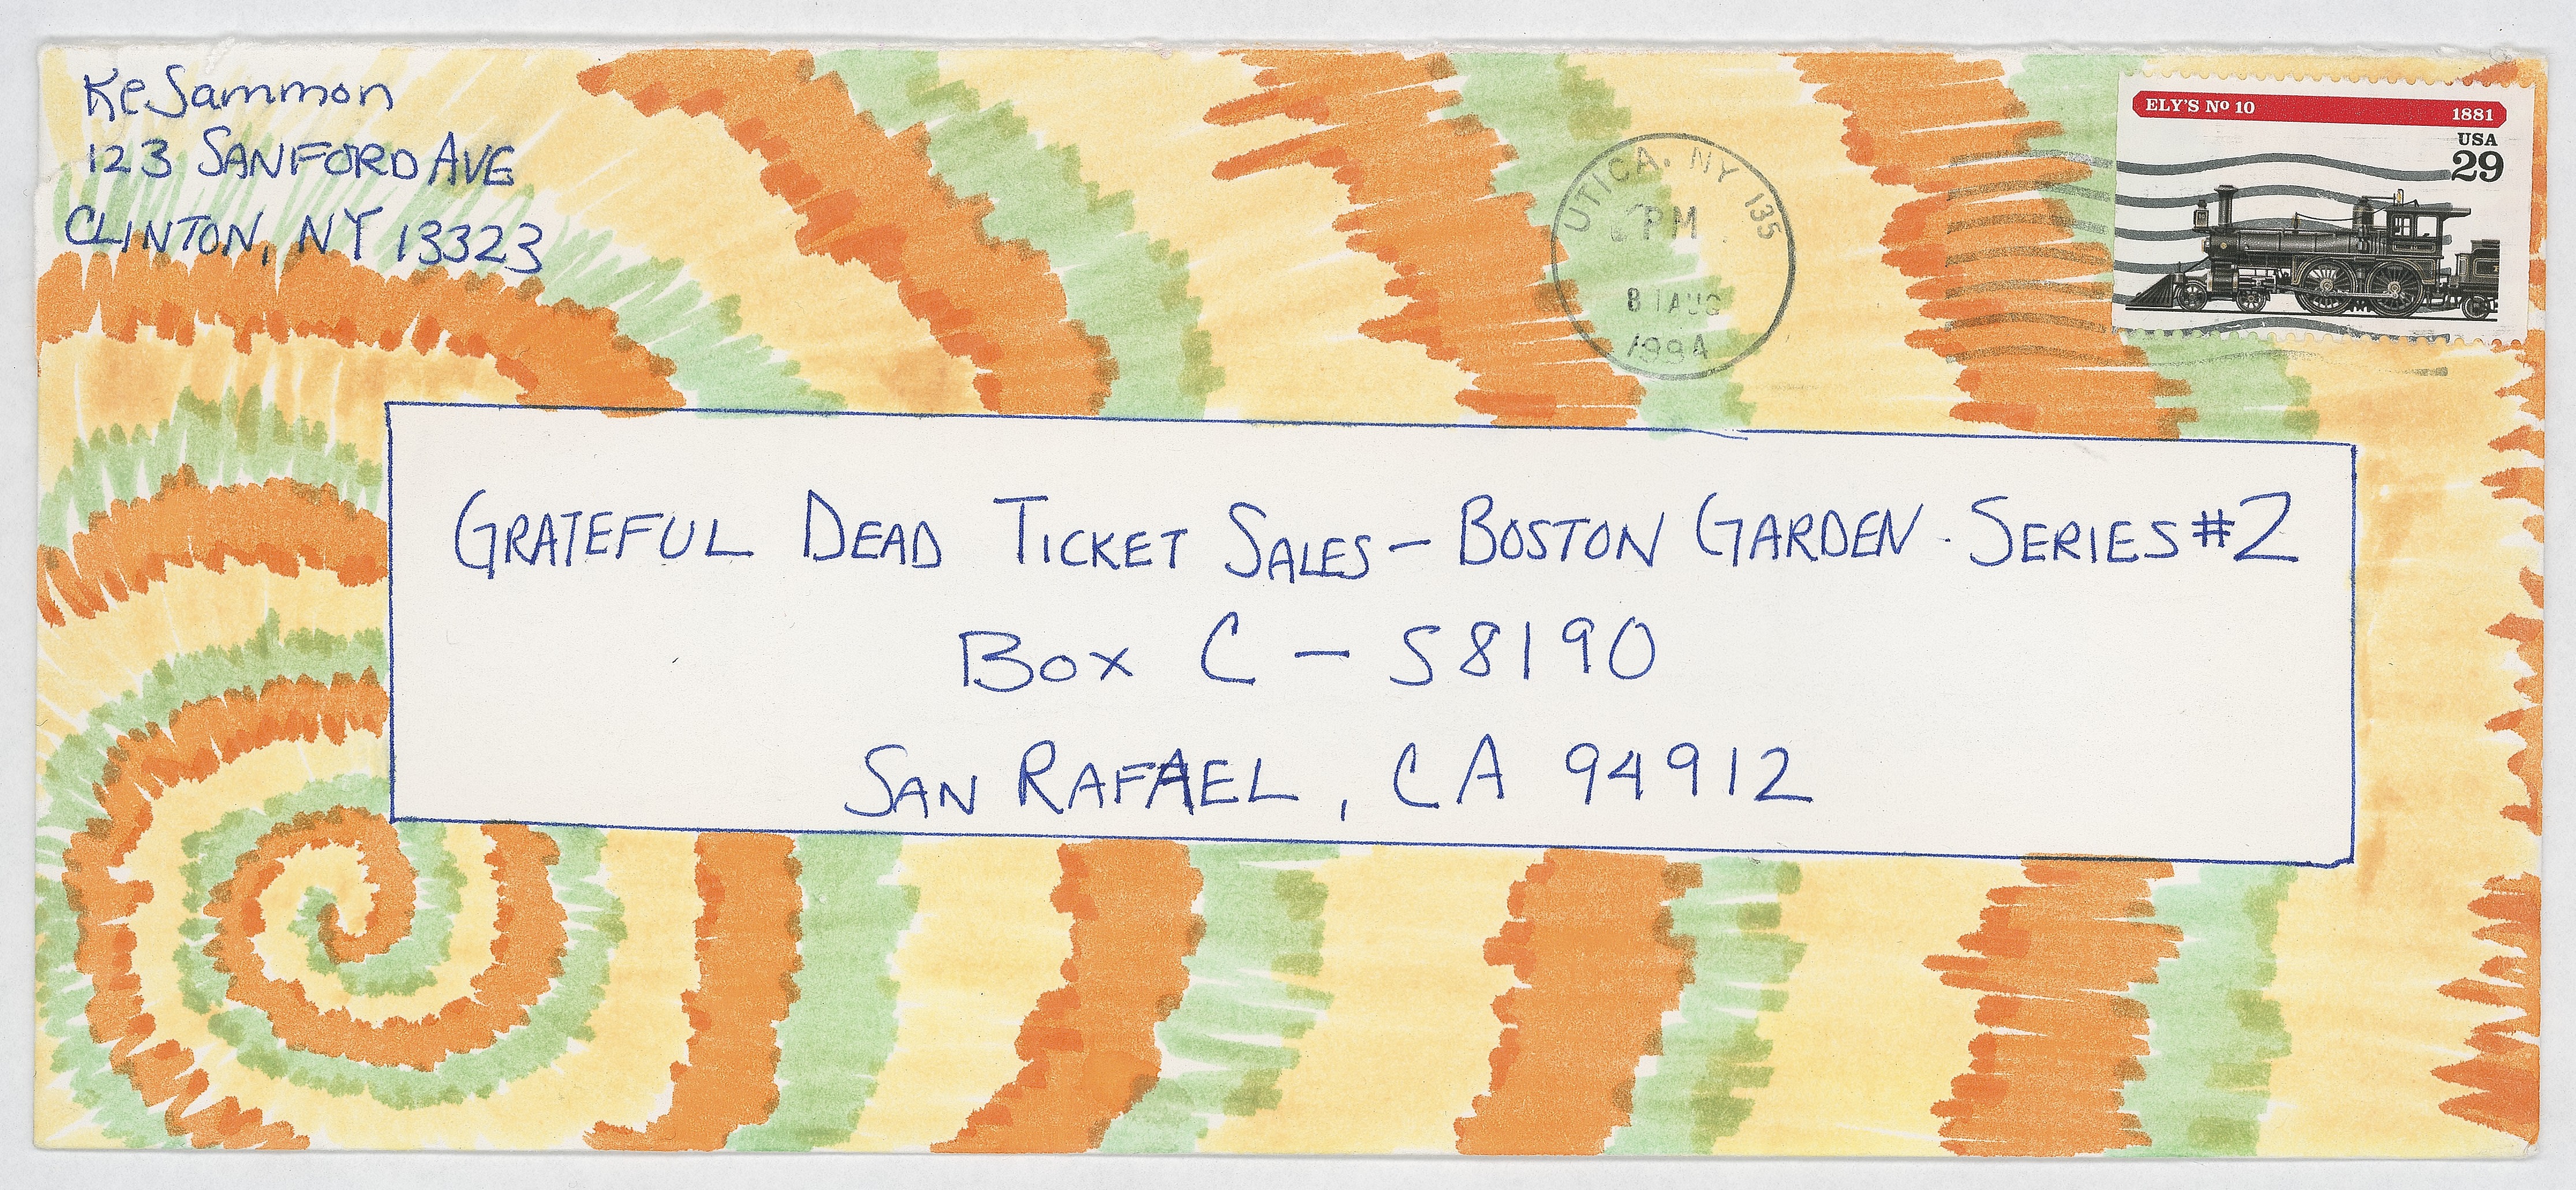 Ke Sammon
123 SANFORD AVE
CLINTON, NY 13323
UTICA, NY 135
PM
AUG
1994
ELY'S No 10
1881
USA
29
GRATEFUL DEAD TICKET SALES - BOSTON GARDEN - SERIES #2
BOX C - S8190
SAN RAFAEL, CA 94912